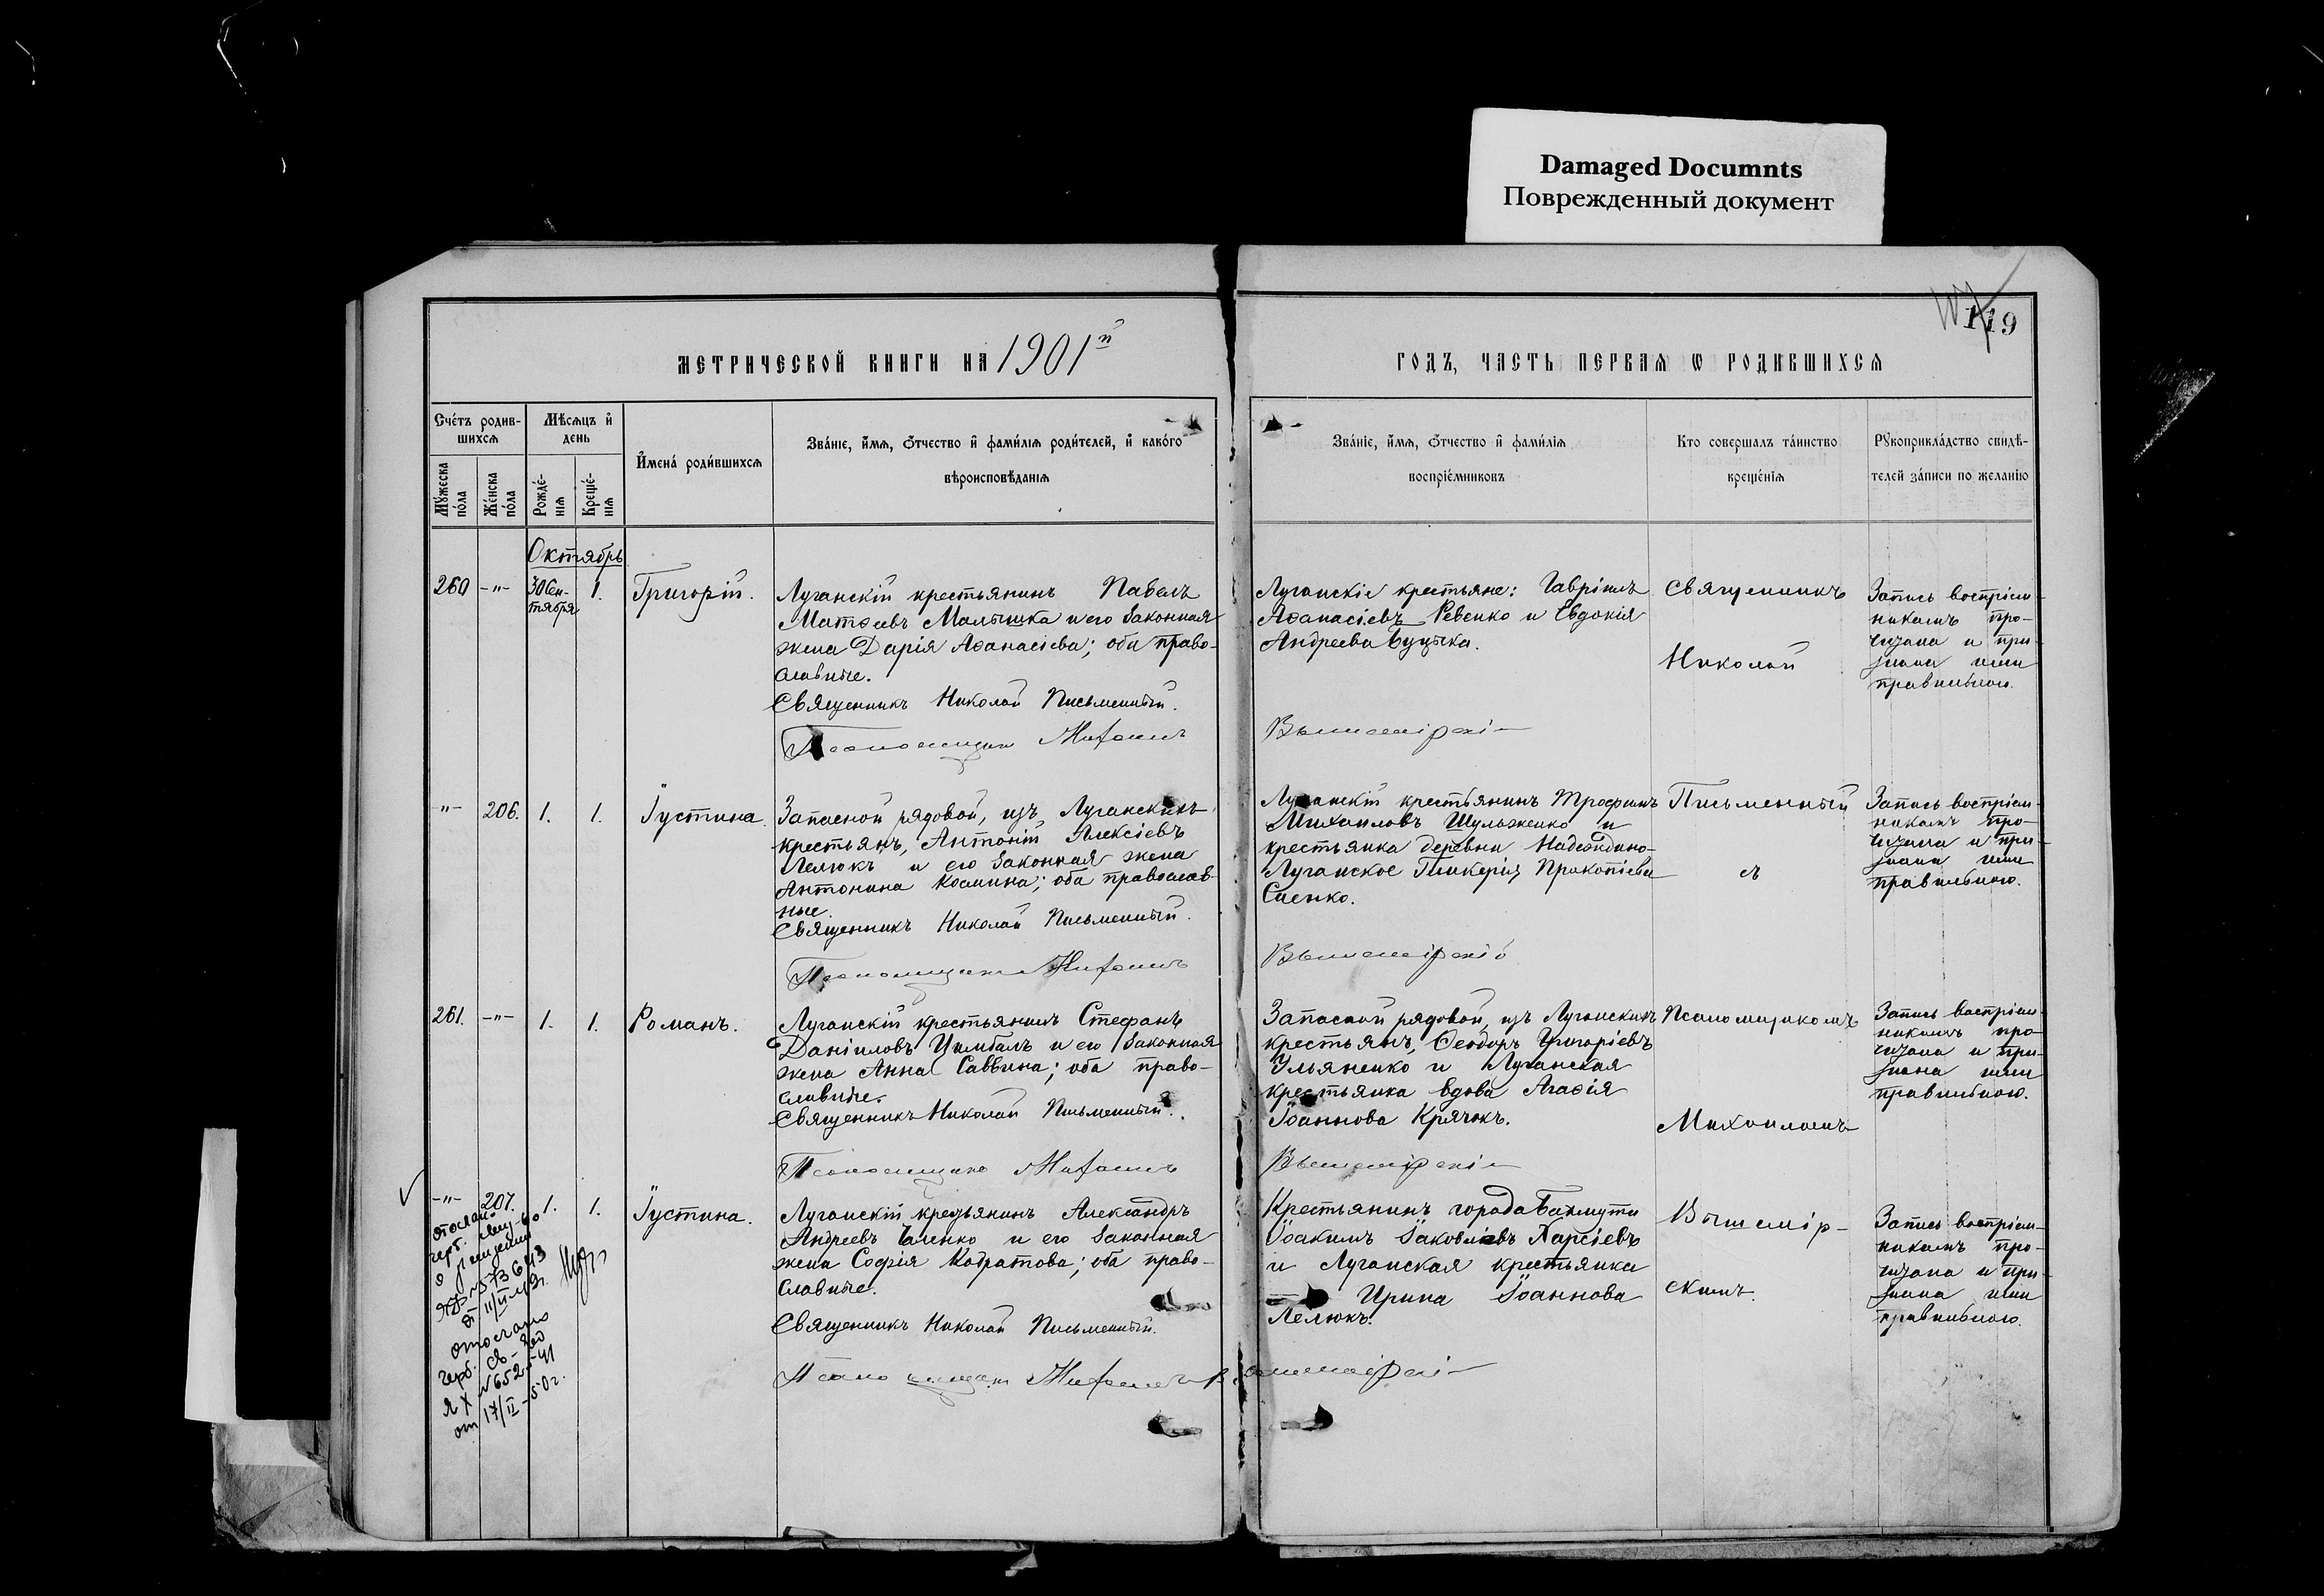 Damaged Documnts
Поврежденный документ
119
МЕТРИЧЕСКОЙ КНИГИ НА 1901й
ГОДЪ, ЧАСТЬ ПЕРВАЯ Ѡ РОДИВШИХСЯ
Счетъ родив-
шихся
Мѣсяцъ и
день
Мужеска
пола
Женска
пола
Рожде-
нія
Креще-
нія
Имена родившихся
Званіе, имя, отчество и фамилія родителей, и какого
вѣроисповѣданія
Званіе, имя, отчество и фамилія
воспріемниковъ
Кто совершалъ таинство
крещенія
Рукоприкладство свидѣ-
телей записи по желанію
Октябрь
260 -"- 30 Сен-
тября 1. Григорій.
Луганскій крестьянинъ Павелъ
Матѳеевъ Малышка и его законная
жена Дарія Аѳанасіева; оба право-
славные.
Священникъ Николай Письменный.
Луганскіе крестьяне: Гавріилъ
Аѳанасіевъ Ревенко и Евдокія
Андреева Буцыка.
Священникъ
Николай
Запись воспріем-
никамъ про-
читана и при-
знана ими
правильною.
-"- 206. 1. 1. Іустина.
Запасной рядовой, изъ Луганскихъ
крестьянъ, Антоній Алексіевъ
Лелюкъ и его законная жена
Антонина Космина; оба православ-
ные.
Священникъ Николай Письменный.
Луганскій крестьянинъ Трофимъ
Михаиловъ Шульженко и
крестьянка деревни
Луганское Гликерія Прокопіева
Сиенко.
Письменный
съ
Запись воспріем-
никамъ про-
читана и при-
знана ими
правильною.
261. -"- 1. 1. Романъ.
Луганскій крестьянинъ Стефанъ
Даніиловъ Цимбалъ и его законная
жена Анна Саввина; оба право-
славные.
Священникъ Николай Письменный.
Запасной рядовой, изъ Луганскихъ
крестьянъ, Ѳеодоръ Григоріевъ
Ульяненко и Луганская
крестьянка вдова Агаѳія
Іоаннова Крячокъ.
Псаломщикомъ
Михаиломъ
Запись воспріем-
никамъ про-
читана и при-
знана ими
правильною.
-"- 207. 1. 1. Іустина.
Луганскій крестьянинъ Александръ
Андреевъ Галенко и его законная
жена Софія Кодратова; оба право-
славные.
Священникъ Николай Письменный.
Крестьянинъ города Бахмута
Іоакимъ Іаковлевъ Харсіевъ
и Луганская крестьянка
Ирина Іоаннова
Лелюкъ.
Вышемір-
скимъ.
Запись воспріем-
никамъ про-
читана и при-
знана ими
правильною.
отослано
герб.
от 17/II-50г.